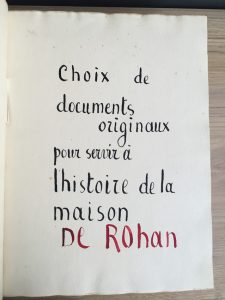 Choix de
documents
originaux
pour servir à
l'histoire de la
maison
DE ROhan